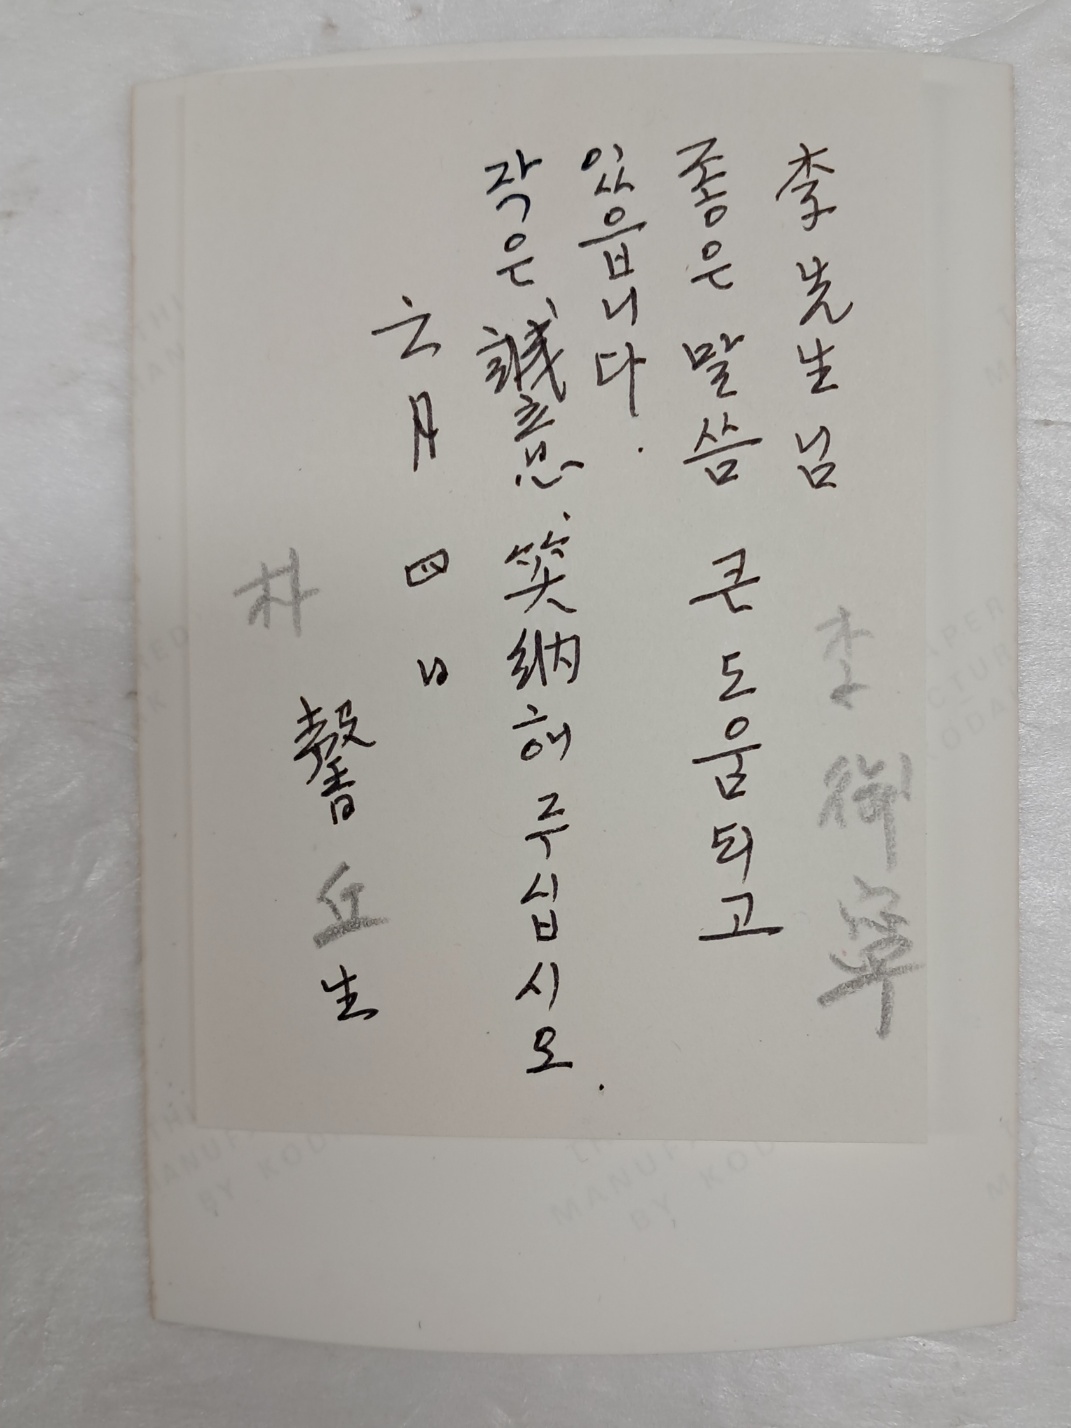 李先生님
李衙寧
좋은 말씀 큰 도움되고
있읍니다.
작은 誠意, 笑納해 주십시오.
六月 四日
朴
馨丘生